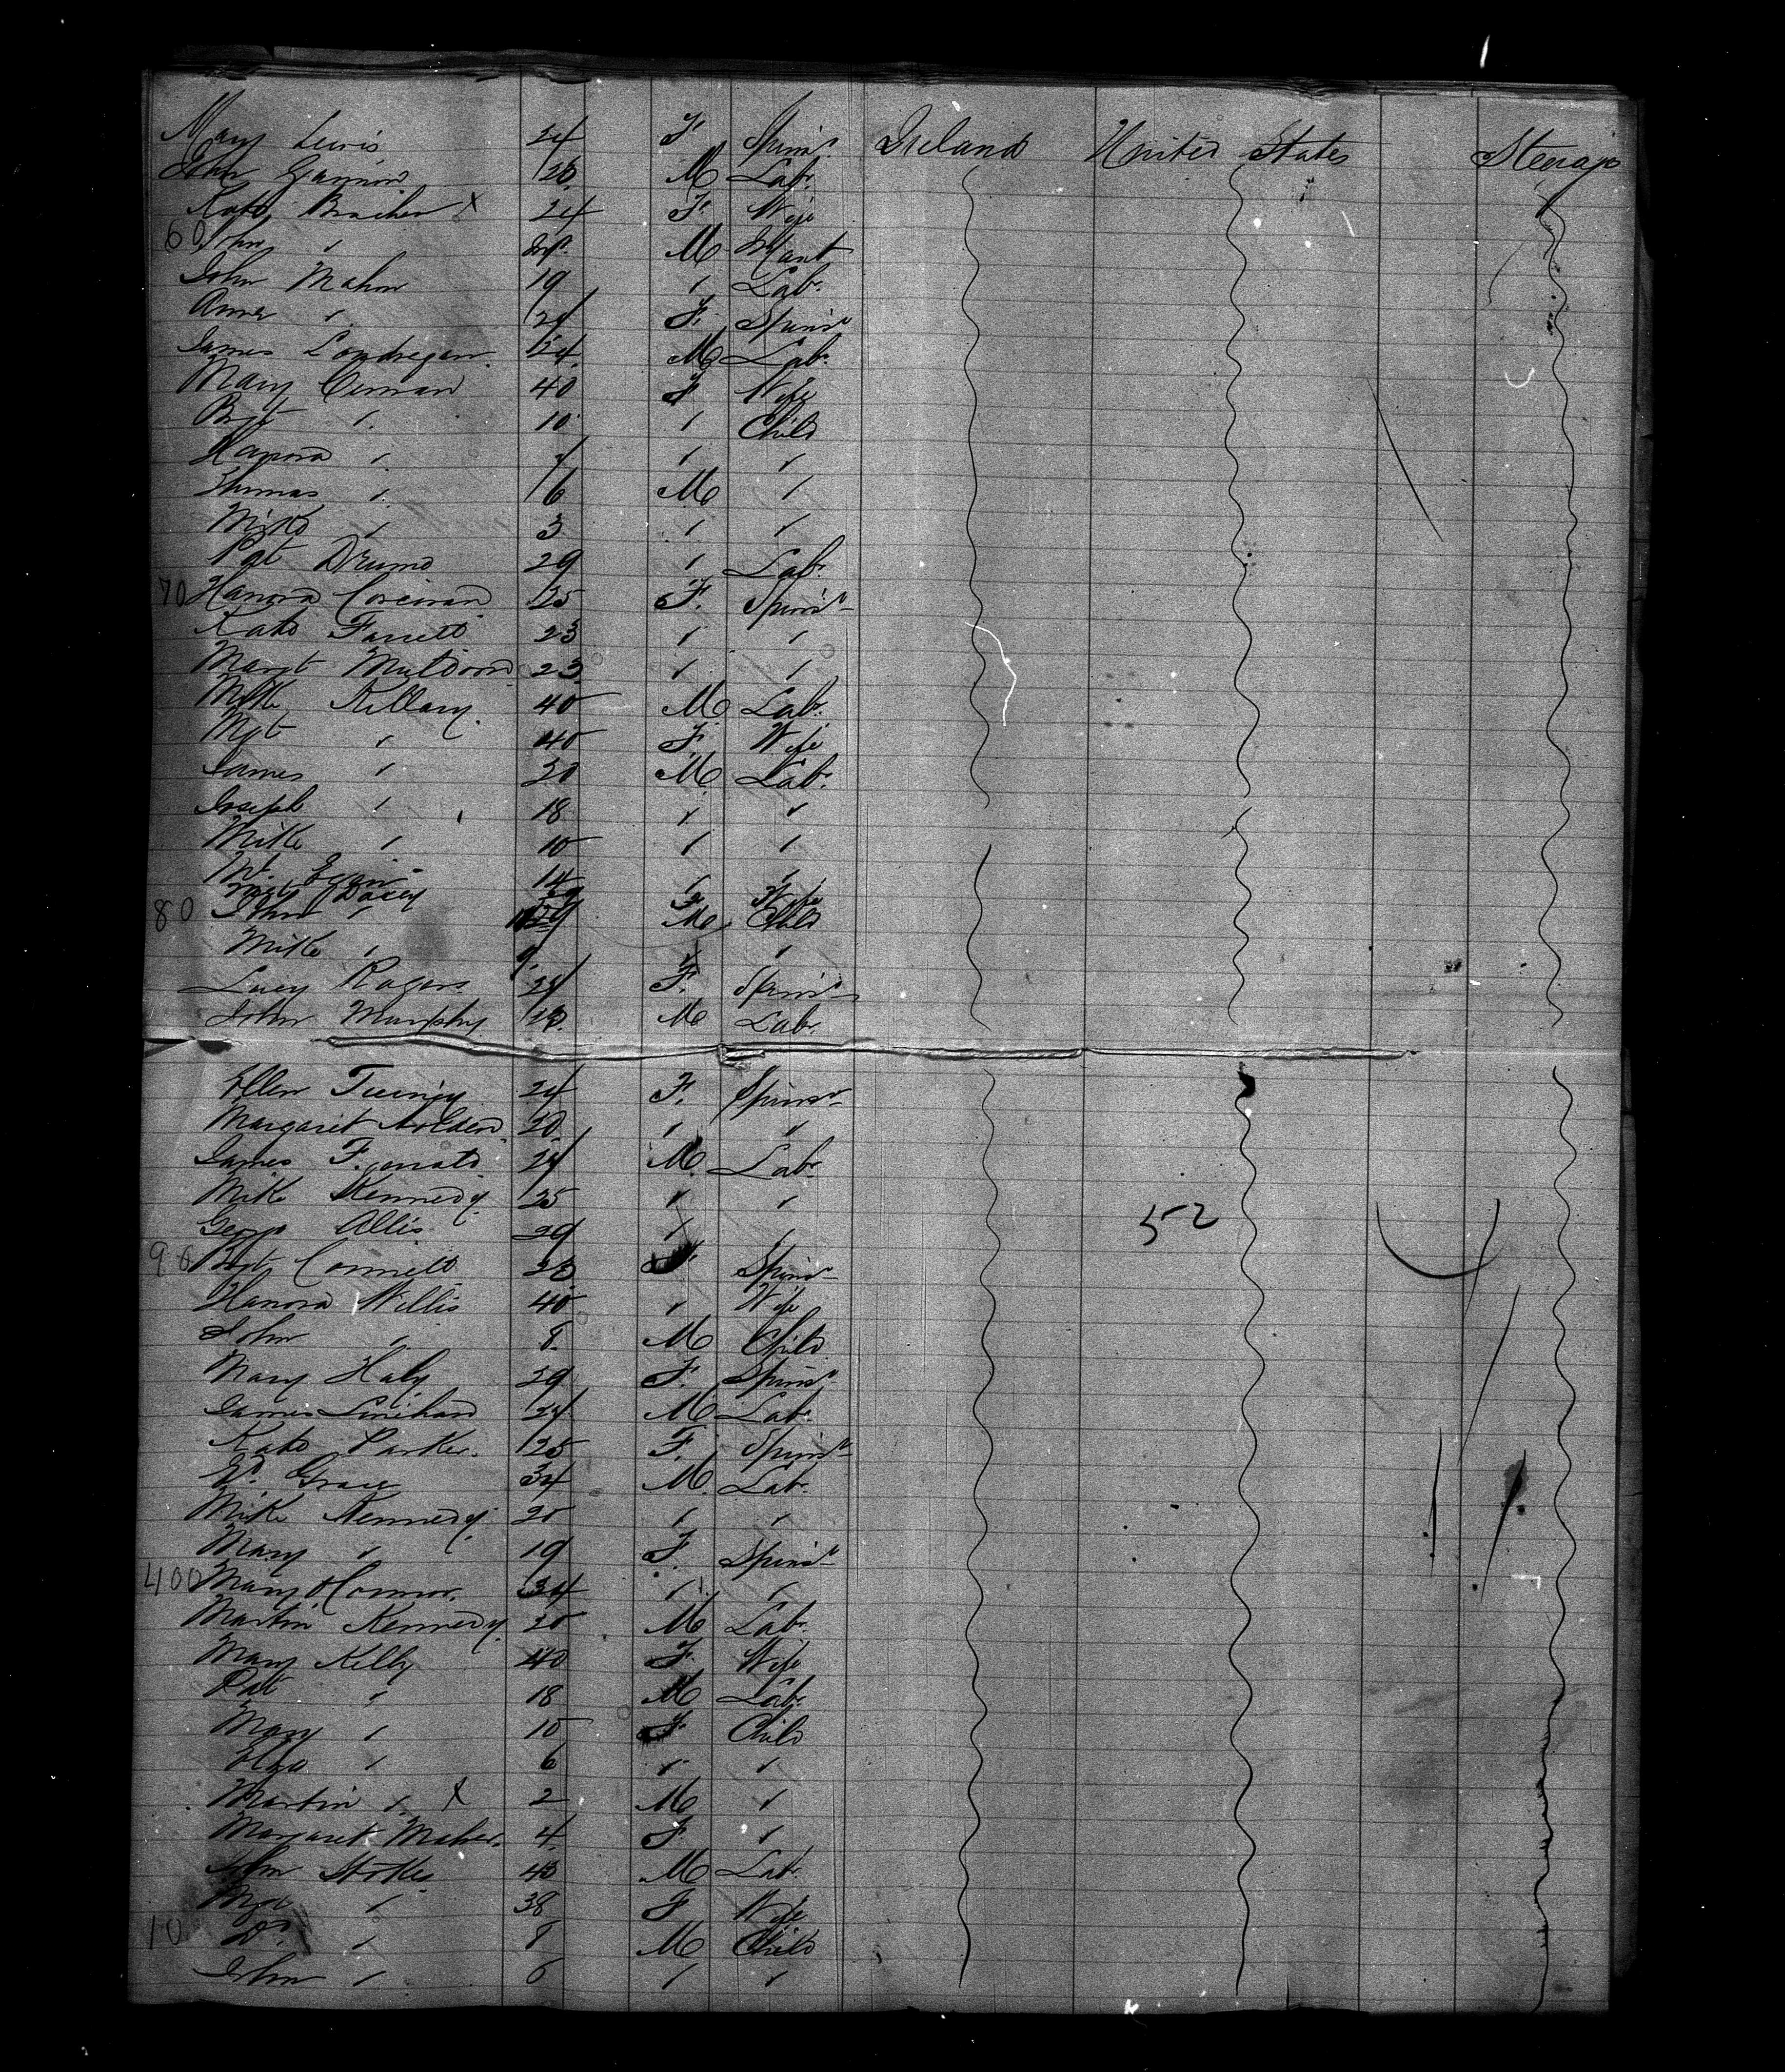 Mary Lewis 24 F. Spinsr. Ireland United States Steerage
John Gannon M Lab.
Kate X 24 F. Wife
60 John " M Infant
John Mahon 19 " Lab.
Anne " F. Spinsr
James Londregan 24 M Lab.
Mary 40 F Wife
Bgt " 10 " Child
Hanora " " "
Thomas " 6 M "
Mike " 3 " "
Pat Drumd 29 " Lab.
70 Hanora Corcoran 25 F. Spinsr
Kate Farrell 23 " "
Margt Muldoon 23 " "
Mike Killary 40 M Lab.
Mgt " 40 F. Wife
James " 20 M Lab.
Joseph " 18 " "
Mike " " "
Egan 14 " "
Dacey F Wife
80 John " M Child
Mike " 9 " "
Lucy Rogers 24 F. Spinsr
John Murphy M Lab.
Ellen 24 F. Spinsr
Margaret 20 " "
James M. Lab.
Mike Kennedy 25 " "
George Allis 29 " " 52
90 Bgt Connell F. Spinsr
Hanora Willis 40 " Wife
John " 8 M Child
Mary Haly 29 F. Spinsr
James Linehan 24 M Lab.
Kate Parker 25 F. Spinsr
Grace 34 M. Lab.
Mike Kennedy 20 " "
Mary " 19 F. Spinsr
400 Mary O'Connor 34 " "
Martin Kennedy 20 M Lab.
Mary Kelly 40 F. Wife
Pat " 18 M Lab.
Mary " 10 F Child
Eliza " 6 " "
Martin " X 2 M "
Margaret Maher 4 F "
John Stokes 40 M Lab.
Mgt " 38 F Wife
10 " 8 M Child
John " 6 " "